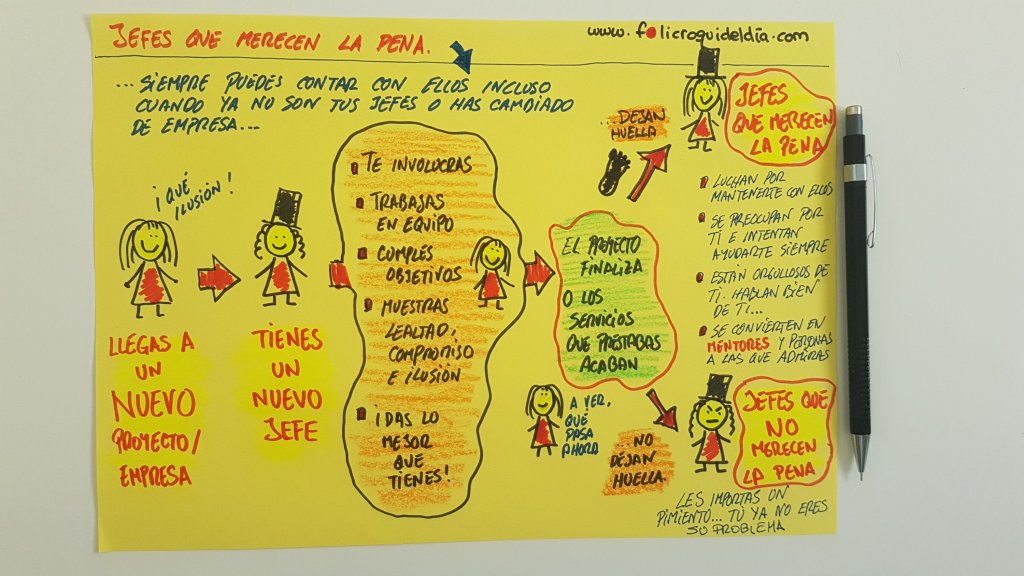 JEFES QUE MERECEN LA PENA.
www.folicroquideldía.com
...SIEMPRE PUEDES CONTAR CON ELLOS INCLUSO
CUANDO YA NO SON TUS JEFES O HAS CAMBIADO
DE EMPRESA...
¡QUÉ
ILUSIÓN!
LLEGAS A
UN
NUEVO
PROYECTO/
EMPRESA
TIENES
UN
NUEVO
JEFE
TE INVOLUCRAS
TRABAJAS
EN EQUIPO
CUMPLES
OBJETIVOS
MUESTRAS
LEALTAD,
COMPROMISO
E ILUSIÓN
¡DAS LO
MEJOR
QUE
TIENES!
EL PROYECTO
FINALIZA
O LOS
SERVICIOS
QUE PRESTABAS
ACABAN
A VER,
QUÉ
PASA
AHORA
...DEJAN
HUELLA
JEFES
QUE MERECEN
LA PENA
LUCHAN POR
MANTENERTE CON ELLOS
SE PREOCUPAN POR
TI E INTENTAN
AYUDARTE SIEMPRE
ESTÁN ORGULLOSOS DE
TI. HABLAN BIEN
DE TI...
SE CONVIERTEN EN
MENTORES Y PERSONAS
A LAS QUE ADMIRAS
...NO
DEJAN
HUELLA.
JEFES QUE
NO
MERECEN
LA PENA
LES IMPORTAS UN
PIMIENTO... TÚ YA NO ERES
SU PROBLEMA